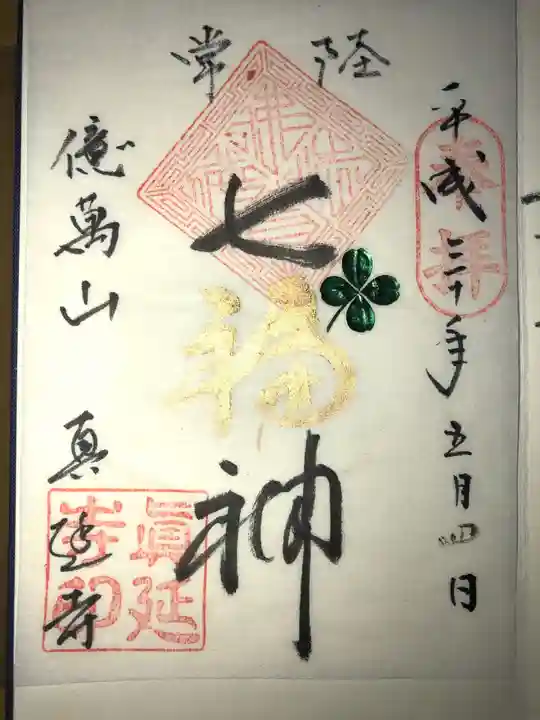 奉拝
平成三十年五月四日
常陸
七福神
億萬山 真延寺
眞延寺印